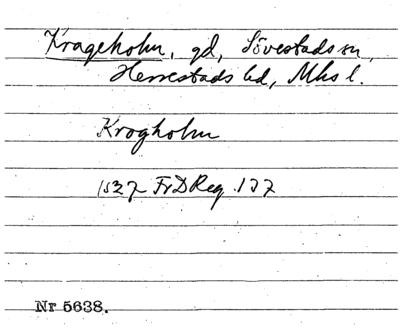 Krageholm, gd, Sövestads sn,
Herrestads hd, Mhs l.
Krogholm
1527 FrDReg 177
Nr 5638.